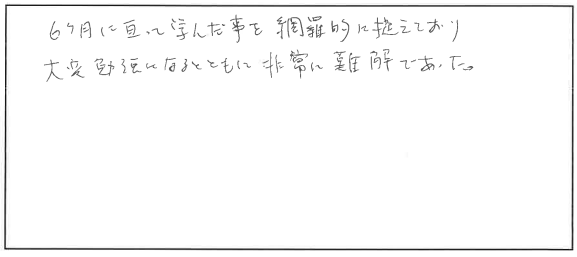 6ヶ月に亘って学んだ事を網羅的に捉えており
大変勉強になるとともに非常に難解であった。